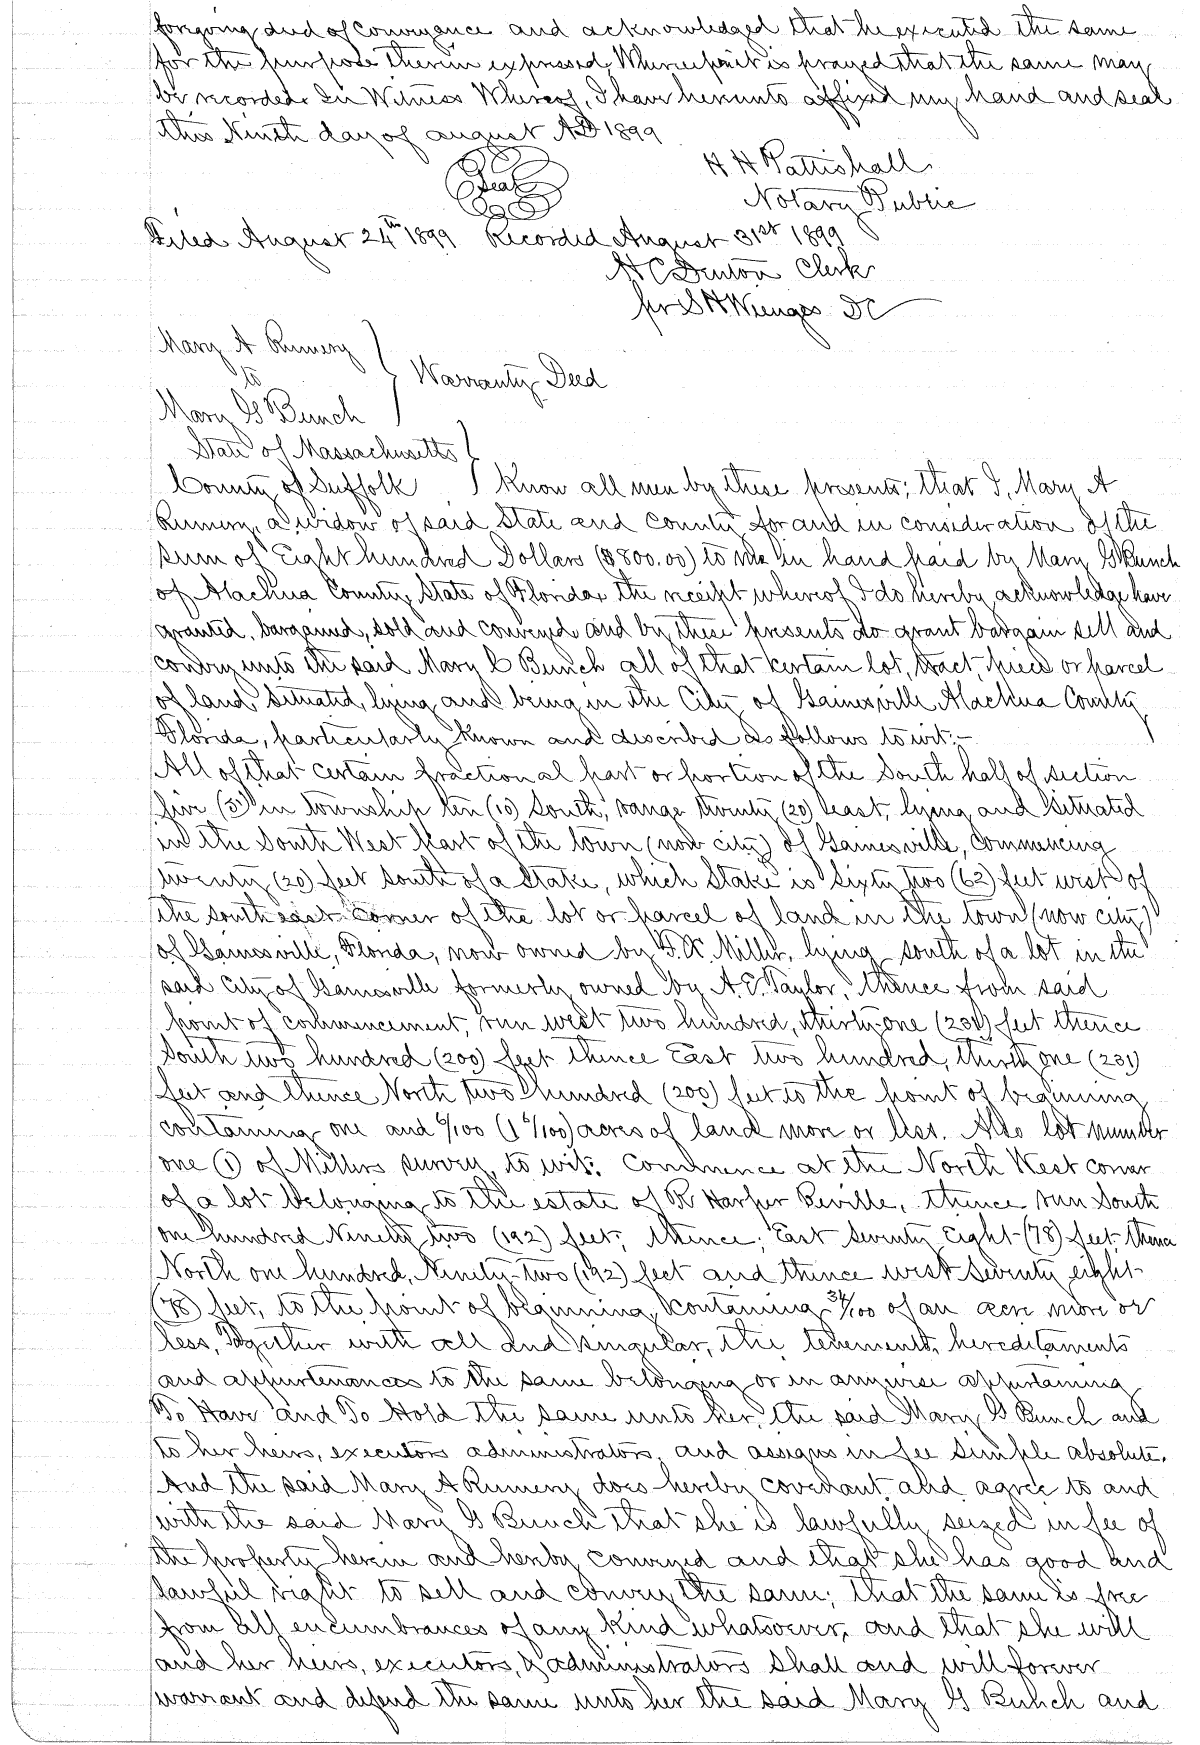 foregoing deed of conveyance and acknowledged that he executed the same
for the purpose therein expressed, Whereupon it is prayed that the same may
be recorded. In Witness Whereof, I have hereunto affixed my hand and seal
this Ninth day of August AD 1899
H H Pattishall
Seal
Notary Public
Filed August 24th 1899 Recorded August 31st 1899
H C Denton Clerk
pr S H Wienges DC
Mary A Rumery }
to } Warranty Deed
Mary G Bunch }
State of Massachusetts }
County of Suffolk } Know all men by these presents; that I, Mary A
Rumery, a widow of said State and County for and in consideration of the
sum of Eight hundred Dollars ($800.00) to me in hand paid by Mary G Bunch
of Alachua County, State of Florida, the receipt whereof I do hereby acknowledge have
granted, bargained, sold and conveyed and by these presents do grant bargain sell and
convey unto the said Mary G Bunch all of that certain lot, tract, piece or parcel
of land, situated, lying and being in the City of Gainesville, Alachua County
Florida, particularly known and described as follows to wit:-
All of that certain fractional part or portion of the South half of section
five (5) in township ten (10) South, range twenty (20) East, lying and situated
in the South West part of the town (now city) of Gainesville, Commencing
twenty (20) feet South of a Stake, which Stake is Sixty two (62) feet west of
the south east corner of the lot or parcel of land in the town (now city)
of Gainesville, Florida, now owned by F. K. Miller, lying south of a lot in the
said City of Gainesville formerly owned by A. E. Taylor, thence from said
point of commencement, run west two hundred, thirty-one (231) feet thence
South two hundred (200) feet thence East two hundred, thirty one (231)
feet and thence North two hundred (200) feet to the point of beginning
containing one and 6/100 (1 6/100) acres of land more or less. Also lot number
one (1) of Millers survey, to wit: Commence at the North West corner
of a lot belonging to the estate of R Harper Reville, thence run South
one hundred Ninety two (192) feet; thence; East Seventy Eight-(78) feet, thence
North one hundred, Ninety-two (192) feet and thence west seventy eight-
(78) feet, to the point of beginning, containing 34/100 of an acre more or
less, Together with all and singular, the tenements, hereditaments
and appurtenances to the same belonging or in anywise appertaining
To Have and To Hold the same unto her, the said Mary G Bunch and
to her heirs, executors administrators, and assigns in fee simple absolute.
And the said Mary A Rumery does hereby covenant and agree to and
with the said Mary G Bunch that she is lawfully seized in fee of
the property herein and hereby conveyed and that she has good and
lawful right to sell and convey the same; that the same is free
from all encumbrances of any kind whatsoever, and that she will
and her heirs, executors, & administrators shall and will forever
warrant and defend the same unto her the said Mary G Bunch and